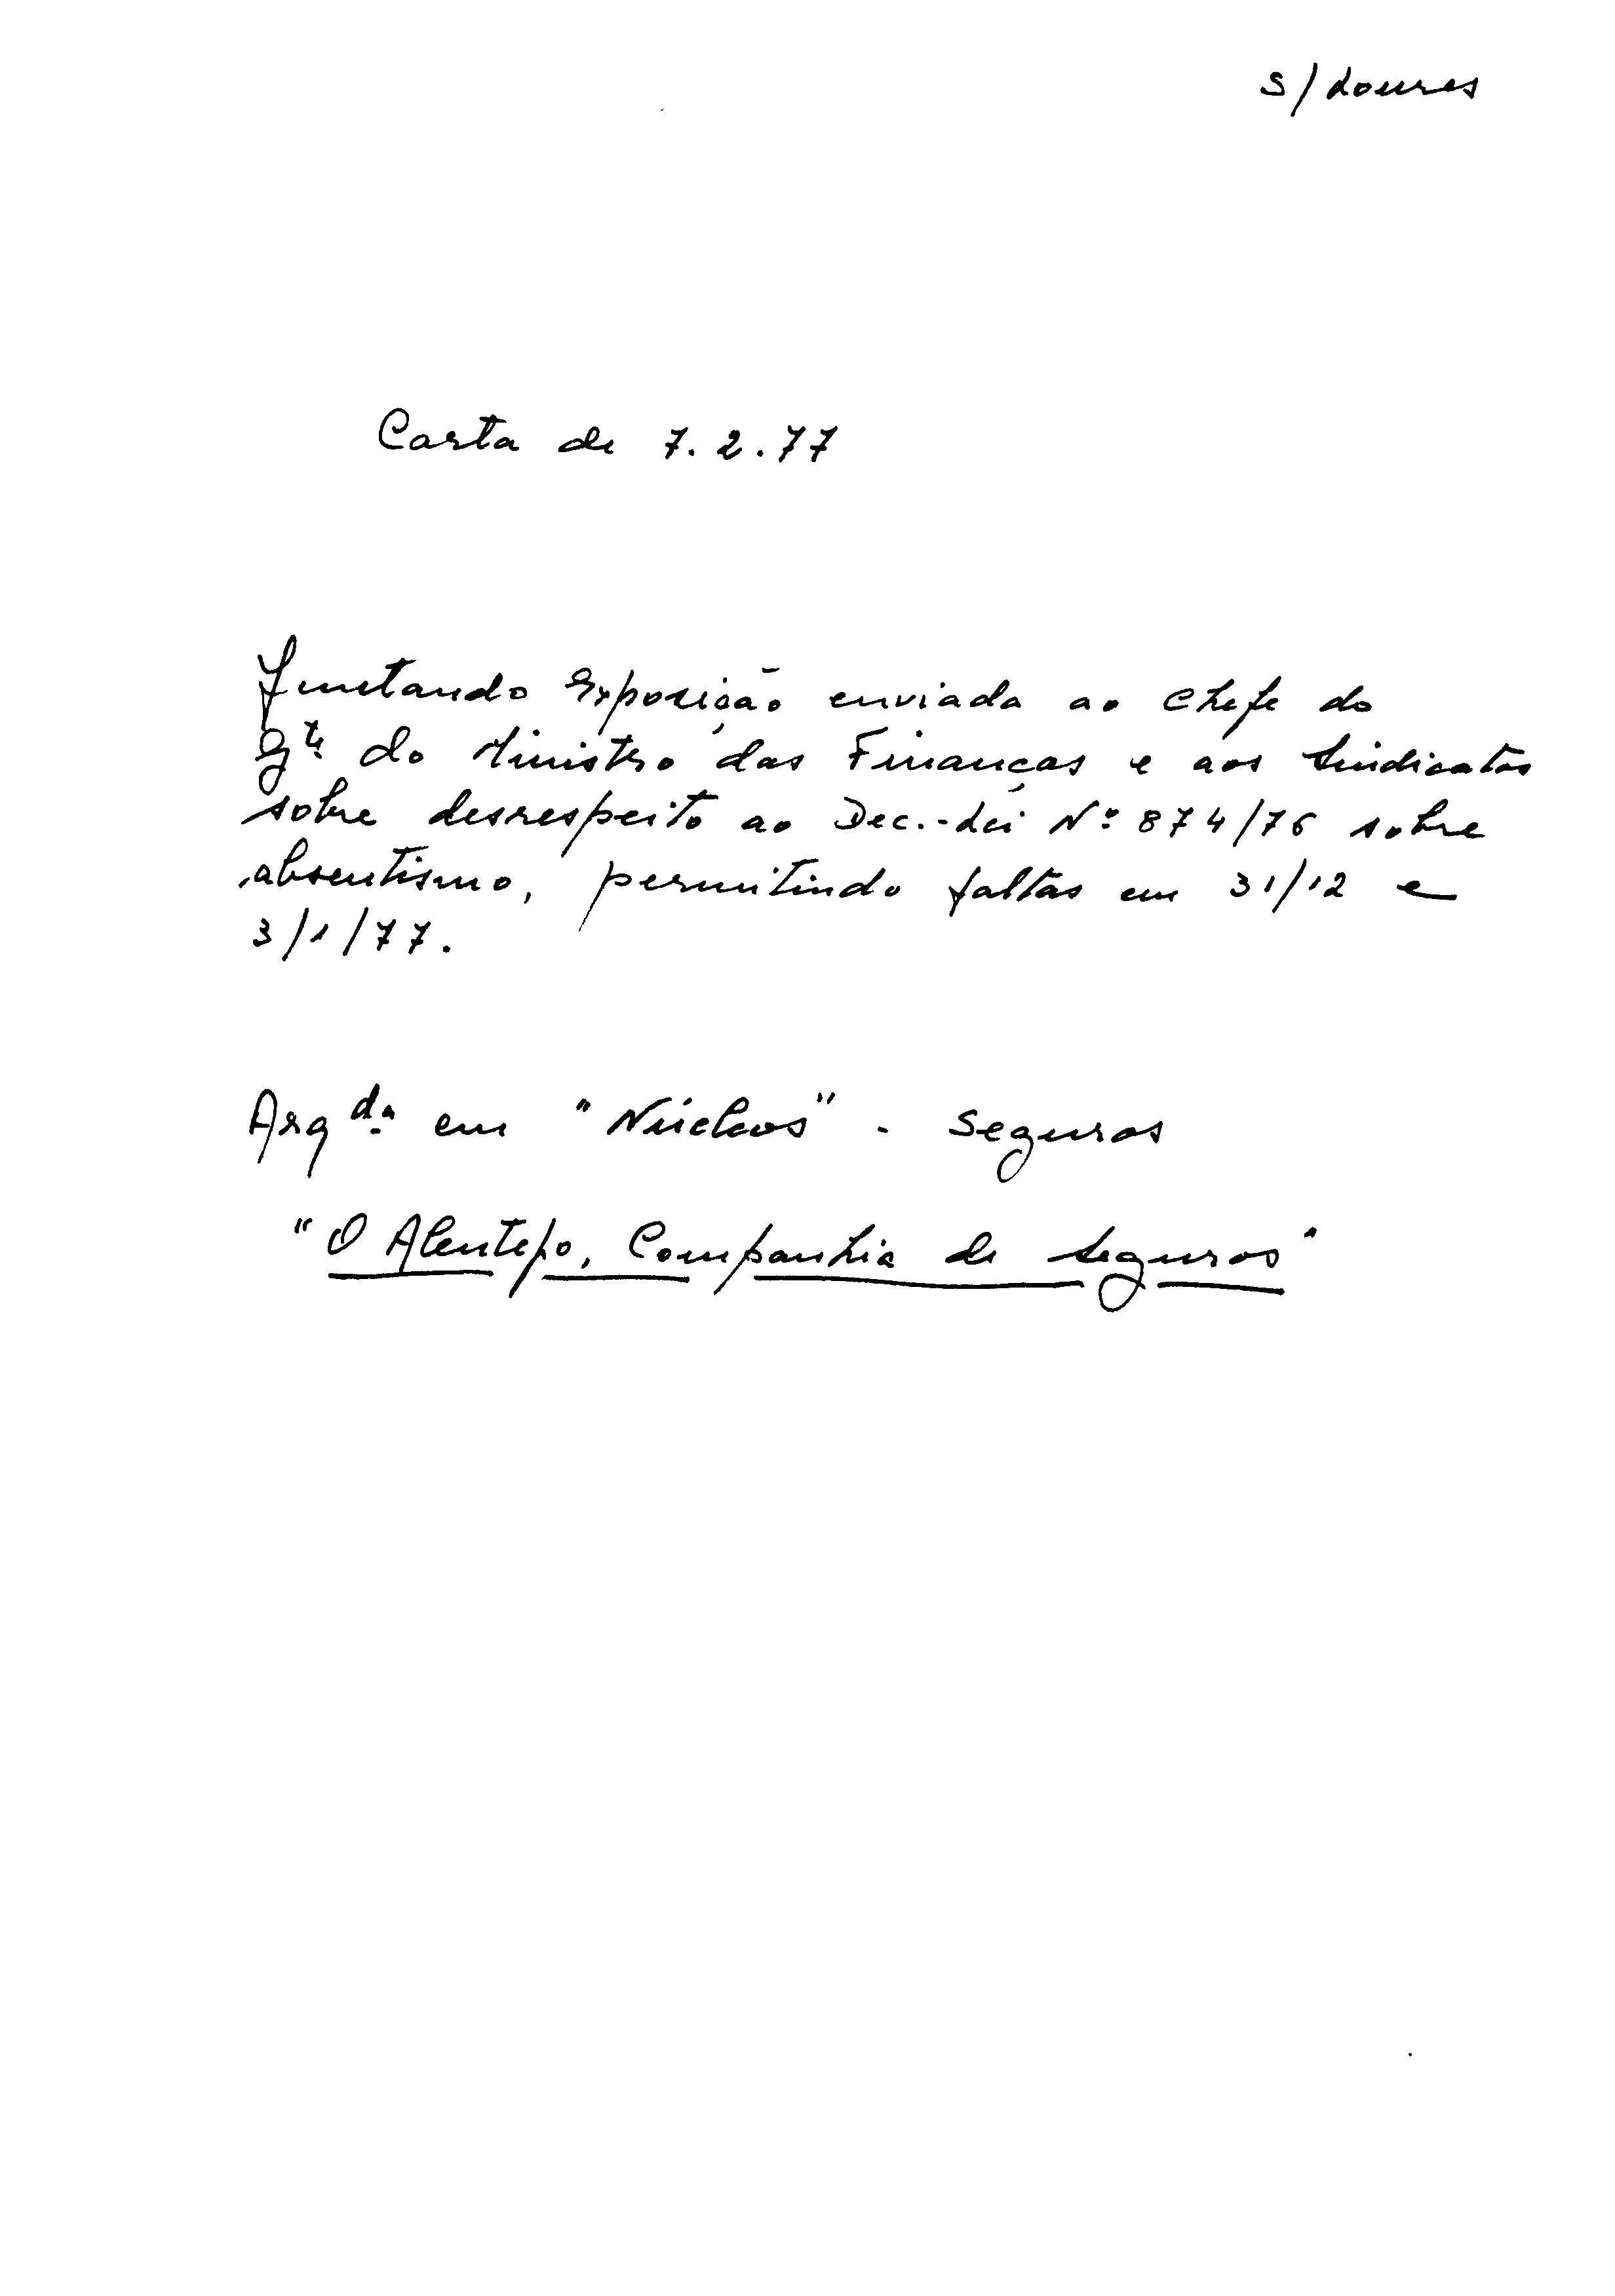 S/Loures
Carta de 7.2.77
Juntando Exposição enviada ao Chefe do
Gte. do Ministro das Finanças e aos Sindicatos
sobre desrespeito ao Dec.-Lei Nº 874/76 sobre
absentismo, permitindo faltas em 31/12 e
3/1/77.
Arqda. em "Núcleos" - Seguros
"O Alentejo, Companhia de Seguros"